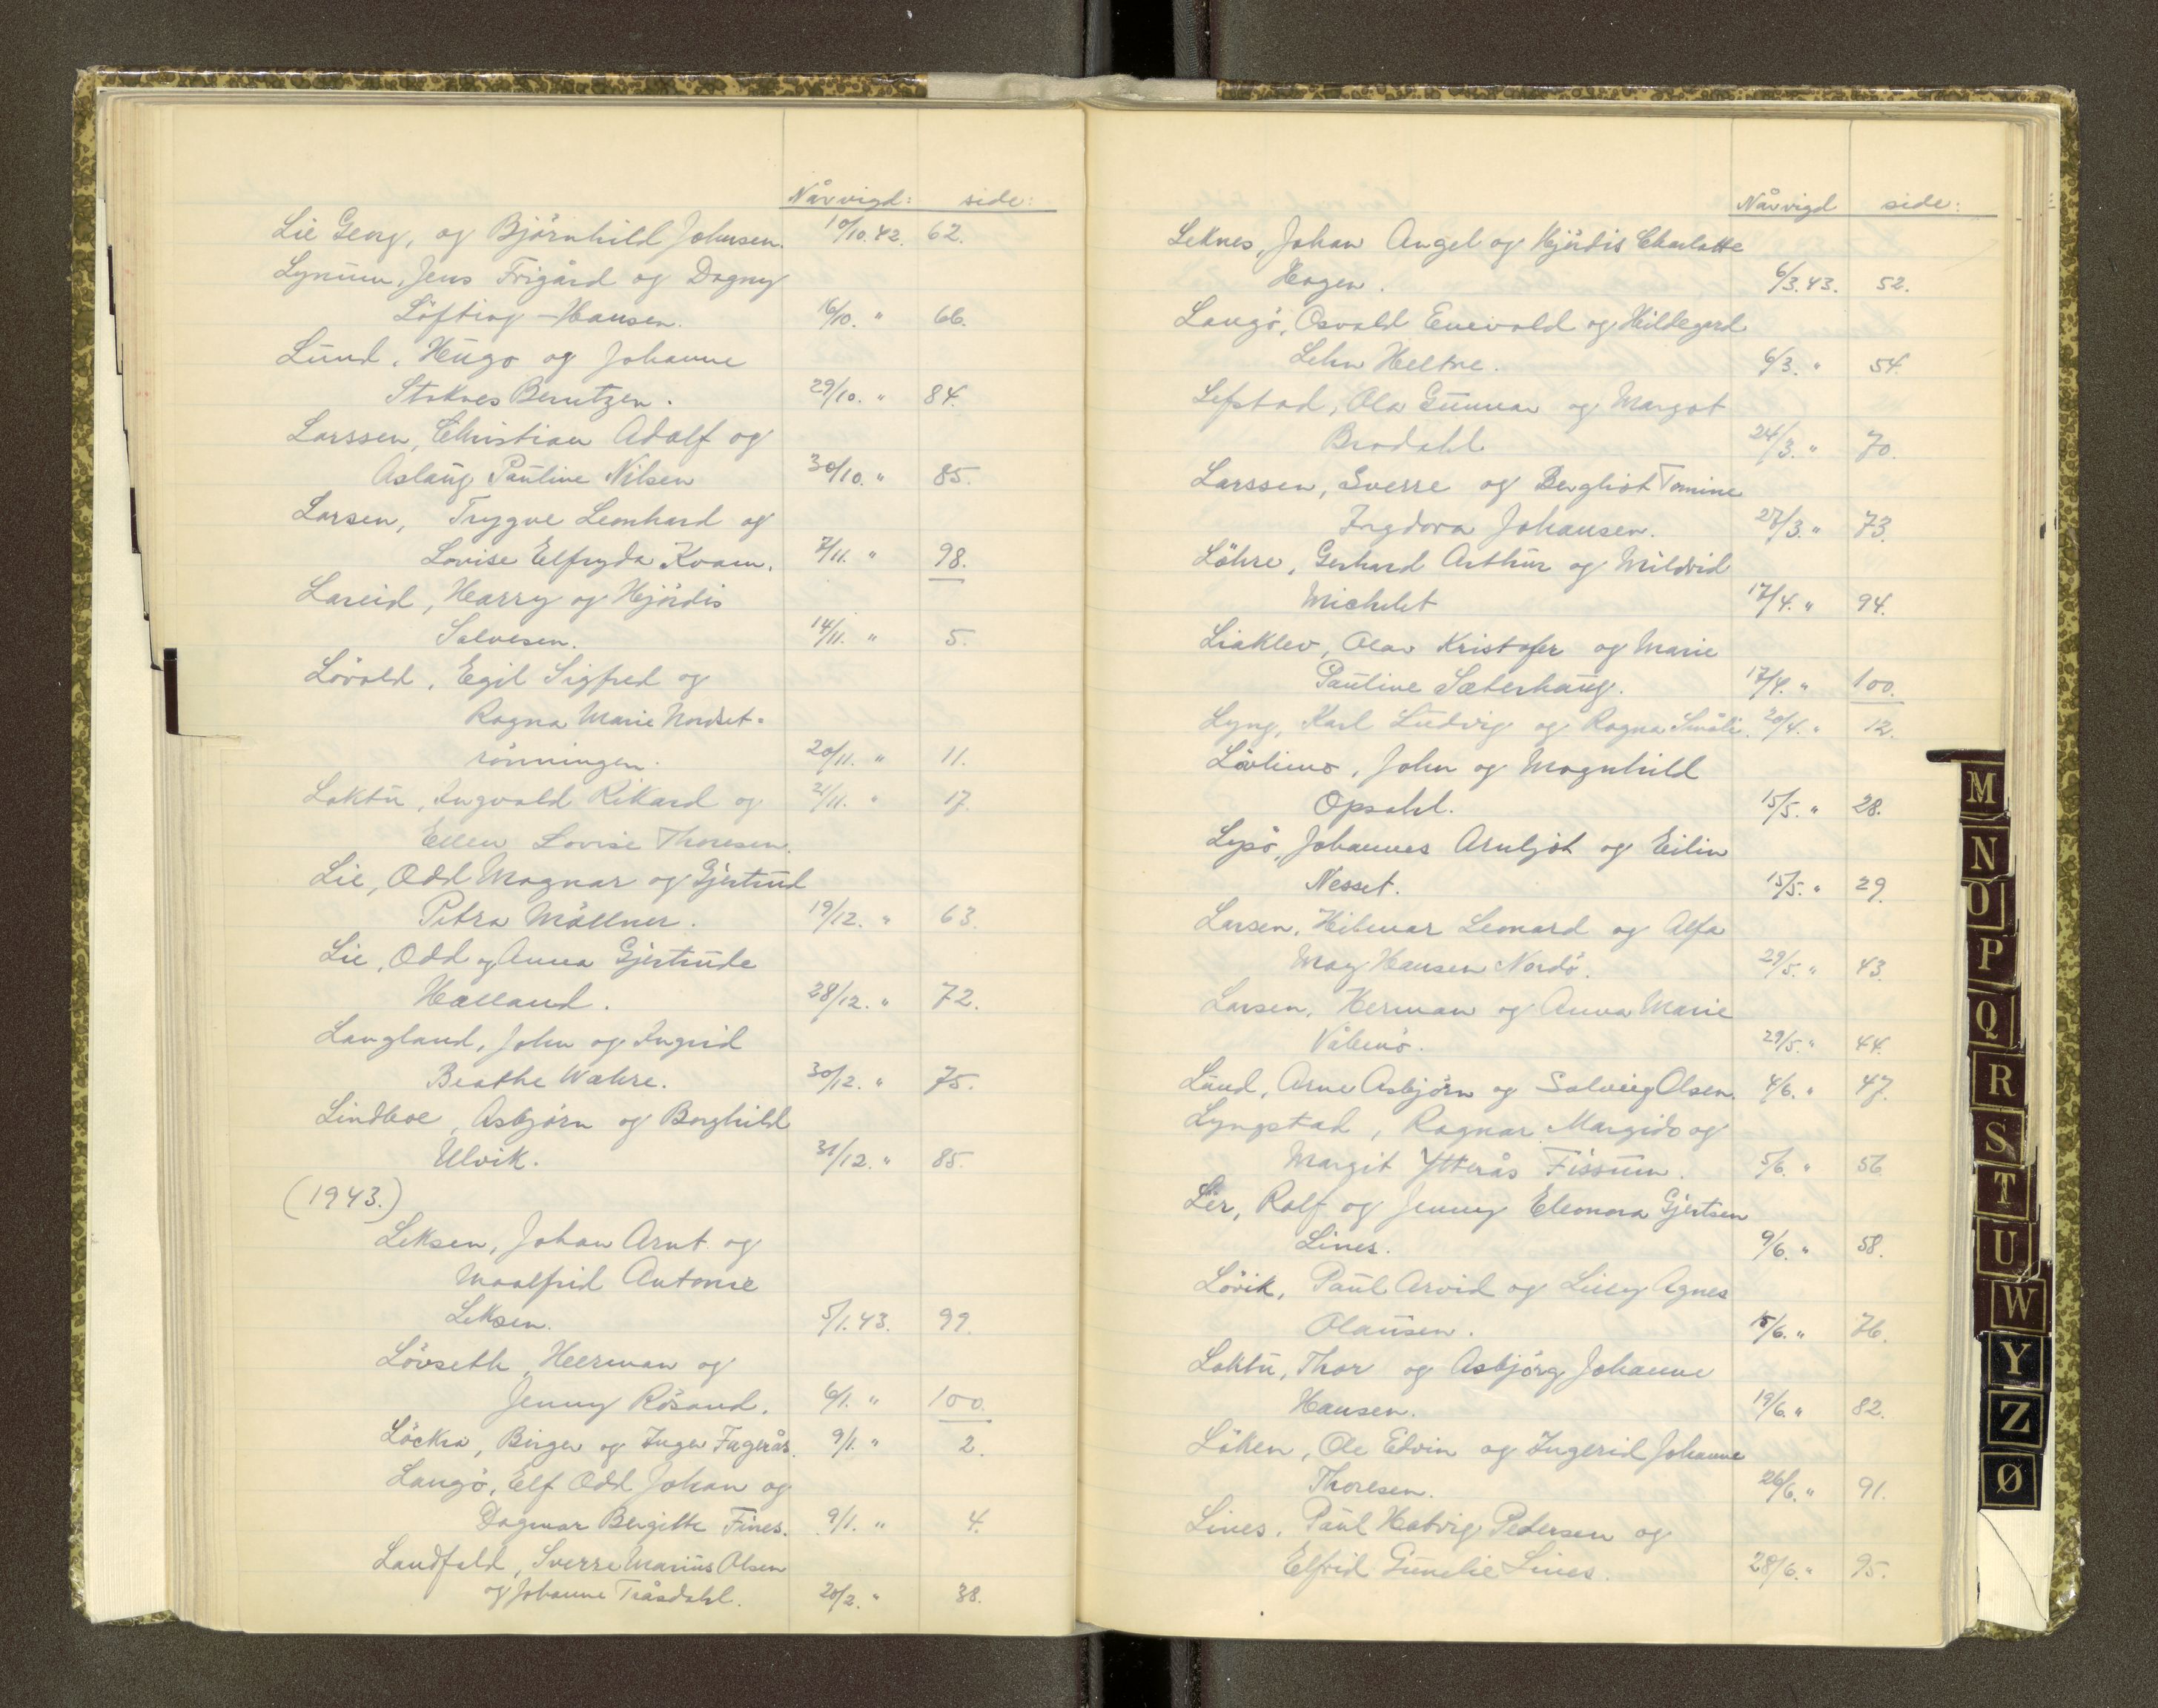 Når vigd: side:
Lie Georg, og Bjørnhild Johnsen. 10/10.42. 62.
Lynum, Jens Frigård og Dagny
Löfting-Hansen. 16/10. " 66.
Lund, Hugo og Johanne
Stoknes Berntzen. 29/10. " 84.
Larssen, Christian Adolf og
Aslaug Pauline Nilsen 30/10. " 85.
Larsen, Trygve Leonhard og
Lovise Elfryda Kvam. 7/11. " 98.
Lareid, Harry og Hjördis
Salvesen. 14/11. " 5.
Lövold, Egil Sigfred og
Ragna Marie Nordset-
rönningen. 20/11. " 11.
Loktu, Ingvald Rikard og 21/11. " 17.
Ellen Lovise Thoresen.
Lie, Odd Magnar og Gjertrud
Petra Möllner. 19/12. " 63.
Lie, Odd og Anna Gjertrude
Hælland. 28/12. " 72.
Langland, John og Ingrid
Beathe Wæhre. 30/12. " 75.
Lindboe, Asbjørn og Borghild
Ulvik. 31/12. " 85.
(1943.)
Leksen, Johan Arnt og
Maalfrid Antonie
Leksen. 5/1.43. 99.
Lövseth, Herman og
Jenny Rösand. 6/1. " 100.
Löckra, Birger og Inger Fagerås. 9/1. " 2.
Langö, Elf Odd Johan og
Dagmar Bergitte Fines. 9/1. " 4.
Landfald, Sverre Marius Olsen
og Johanne Tråsdahl. 20/2. " 38.
Når vigd side:
Leknes, Johan Angel og Hjördis Charlotte
Hagen. 6/3.43. 52.
Langö, Osvald Enevald og Hildegard
Lehn Heltne. 6/3. " 54.
Lefstad, Ola Gunnar og Margot
Brodahl 24/3. " 70.
Larssen, Sverre og Bergliot Tomine
Ingdora Johansen. 27/3. " 73.
Löhre, Gerhard Arthur og Mildrid
Michelet 17/4. " 94.
Liaklev, Olav Kristofer og Marie
Pauline Sæterhaug. 17/4. " 100.
Lyng, Karl Ludvig og Ragna Småli. 20/4. " 12.
Lövlimo, John og Magnhild
Opsahl. 15/5. " 28.
Lysö, Johannes Arnljot og Eilin
Nesset. 15/5. " 29.
Larsen, Hilmar Leonard og Alfa
May Hansen Nordö. 29/5. " 43.
Larsen, Herman og Anna Marie
Vålmö. 29/5. " 44.
Lund, Arne Asbjörn og Solveig Olsen. 4/6. " 47.
Lyngstad, Ragnar Margido og
Margit Ytterås Fissum. 5/6. " 56
Lér, Rolf og Jenny Eleonora Gjertsen
Lines. 9/6. " 58.
Lövik, Paul Arvid og Lilly Agnes
Olaussen. 15/6. " 76.
Loktu, Thor og Asbjörg Johanne
Hansen. 19/6. " 82.
Löken, Ole Edvin og Ingerid Johanne
Thoresen. 26/6. " 91.
Lines, Paul Hatvig Pedersen og
Elfrid Gunelie Lines. 28/6. " 95.
M
N
O
P
Q
R
S
T
U
W
Y
Z
Ø